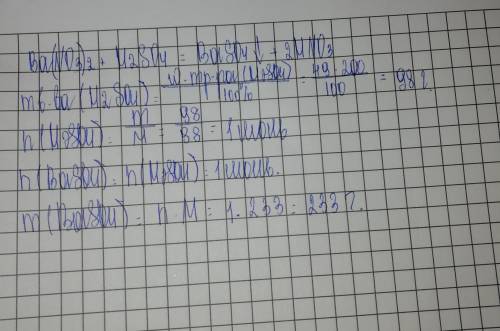 Ba(NO3)2 + H2SO4 = BaSO4↓ + 2HNO3
m в-ва (H2SO4) = w · mр-ра (H2SO4) / 100% = 49 · 200 / 100 = 98 г.
n(H2SO4) = m / M = 98 / 98 = 1 моль
n(BaSO4) = n(H2SO4) = 1 моль.
m(BaSO4) = n · M = 1 · 233 = 233 г.